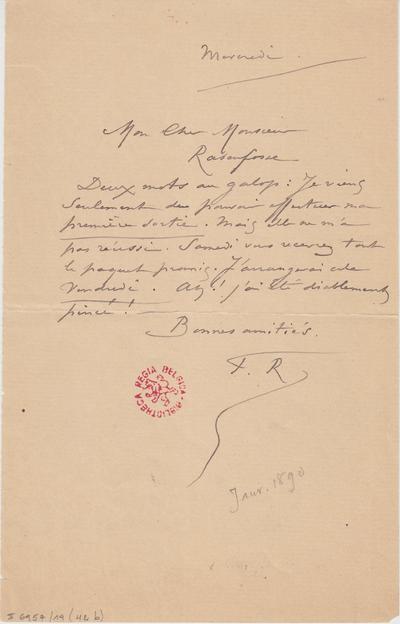 Mercredi.
Mon Cher Monsieur
Rassenfosse
Deux mots au galop : Je viens
seulement de pouvoir effectuer ma
première sortie. Mais elle ne m'a
pas réussi. Samedi vous recevrez tout
le paquet promis. J'arrangerai cela
Vendredi. Ah! j'ai été diablement
pincé! —
Bonnes amitiés.
F. R
BIBLIOTHECA REGIA BELGICA
Janv. 1890
II 6957/19 (42 b)